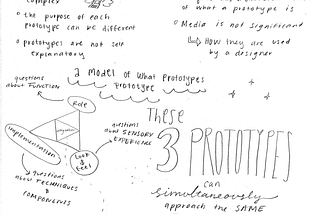 complex
• the purpose of each
prototype can be different
• prototypes are not self
explanatory
of what a prototype is
• Media is not significant
↳ How they are used
by a designer
a model of What Prototypes
prototype
questions
about FUNCTION
Role
Implementation
Look & Feel
questions
about SENSORY
EXPERIENCE
questions
about TECHNIQUES
&
COMPONENTS
These
3 PROTOTYPES
can
simultaneously
approach the SAME